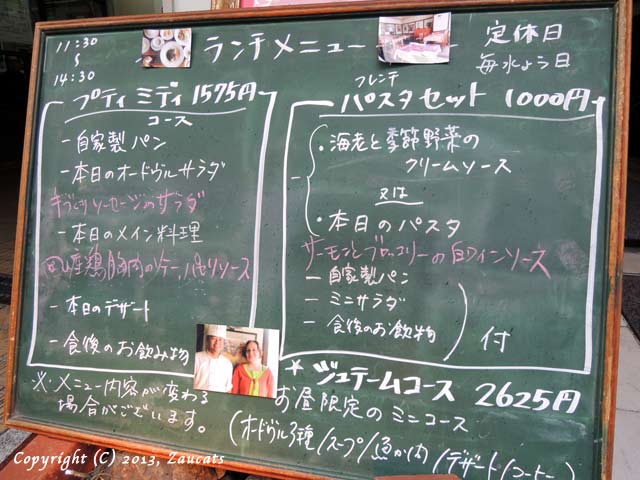 11:30
〜
14:30
ランチメニュー
定休日
毎水よう日
プティ ミディ 1575円
コース
ー自家製パン
ー本日のオードヴルサラダ
手づくりソーセージのサラダ
ー本日のメイン料理
産鶏胸肉のソテー、パセリソース
ー本日のデザート
ー食後のお飲み物
※・メニュー内容が変わる
場合がございます。
フレンチ
パスタセット 1000円
・海老と季節野菜の
クリームソース
又は
・本日のパスタ
サーモンとブロッコリーの白ワインソース
ー自家製パン
ーミニサラダ
ー食後のお飲物
付
★ジュテームコース 2625円
お昼限定のミニコース
(オードヴル3種/スープ/魚か肉/デザート/コーヒー)
Copyright (C) 2013, Zaucats